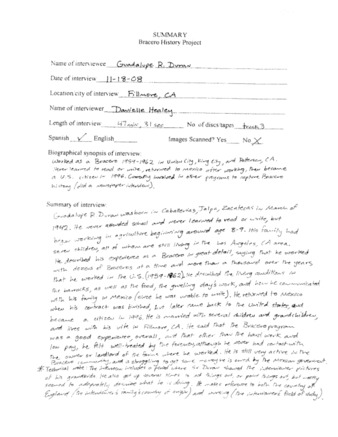 SUMMARY
Bracero History Project
Name of interviewee Guadalupe R. Duran
Date of interview 11-18-08
Location: city of interview Fillmore, CA
Name of interviewer Danielle Healey
Length of interview 47 min, 31 sec No of discs/tapes
Spanish ✓ English Images Scanned? Yes No X
Biographical synopsis of interview:
Worked as a Bracero 1959-1962 in King City, and CA.
never learned to read or write, returned to Mexico after working, then became
a U.S. citizen in
history
Summary of interview:
Guadalupe R. Duran was born in Jalpa, Zacatecas in March of
He never attended school and never learned to read or write, but
began working in agriculture beginning around age 8-9. His family had
seven children, all of whom are still living in the Los Angeles, CA area.
He described his experience as a Bracero in great detail, saying that he worked
with dozens of Braceros at a time and more than a thousand over the years
that he worked in the U.S. (1959-1962). He described the living conditions in
the barracks, as well as the food, the grueling day's work, and how he communicated
with his family in Mexico (since he was unable to write). He returned to Mexico
when his contract was finished, but later came back to the United States, and
became a citizen in He is married with several children and grandchildren,
and lives with his wife in Fillmore, CA. He said that the Bracero program
was a good experience overall, and that other than the hard work and
low pay, he felt well-treated by the although he never had contact with
the owner or landlord of the farms where he worked. He is still very active in the
Bracero community and is struggling to get some money he is owed by the Mexican government.
Technical note: The interview includes a period where Sr. Duran showed the interviewer pictures
of his grandkids. He also got up several times to
to adequately describe what he is doing. makes reference to both the country of
England (the interviewer's family's country of origin) and nursing (the interviewer's field of study).